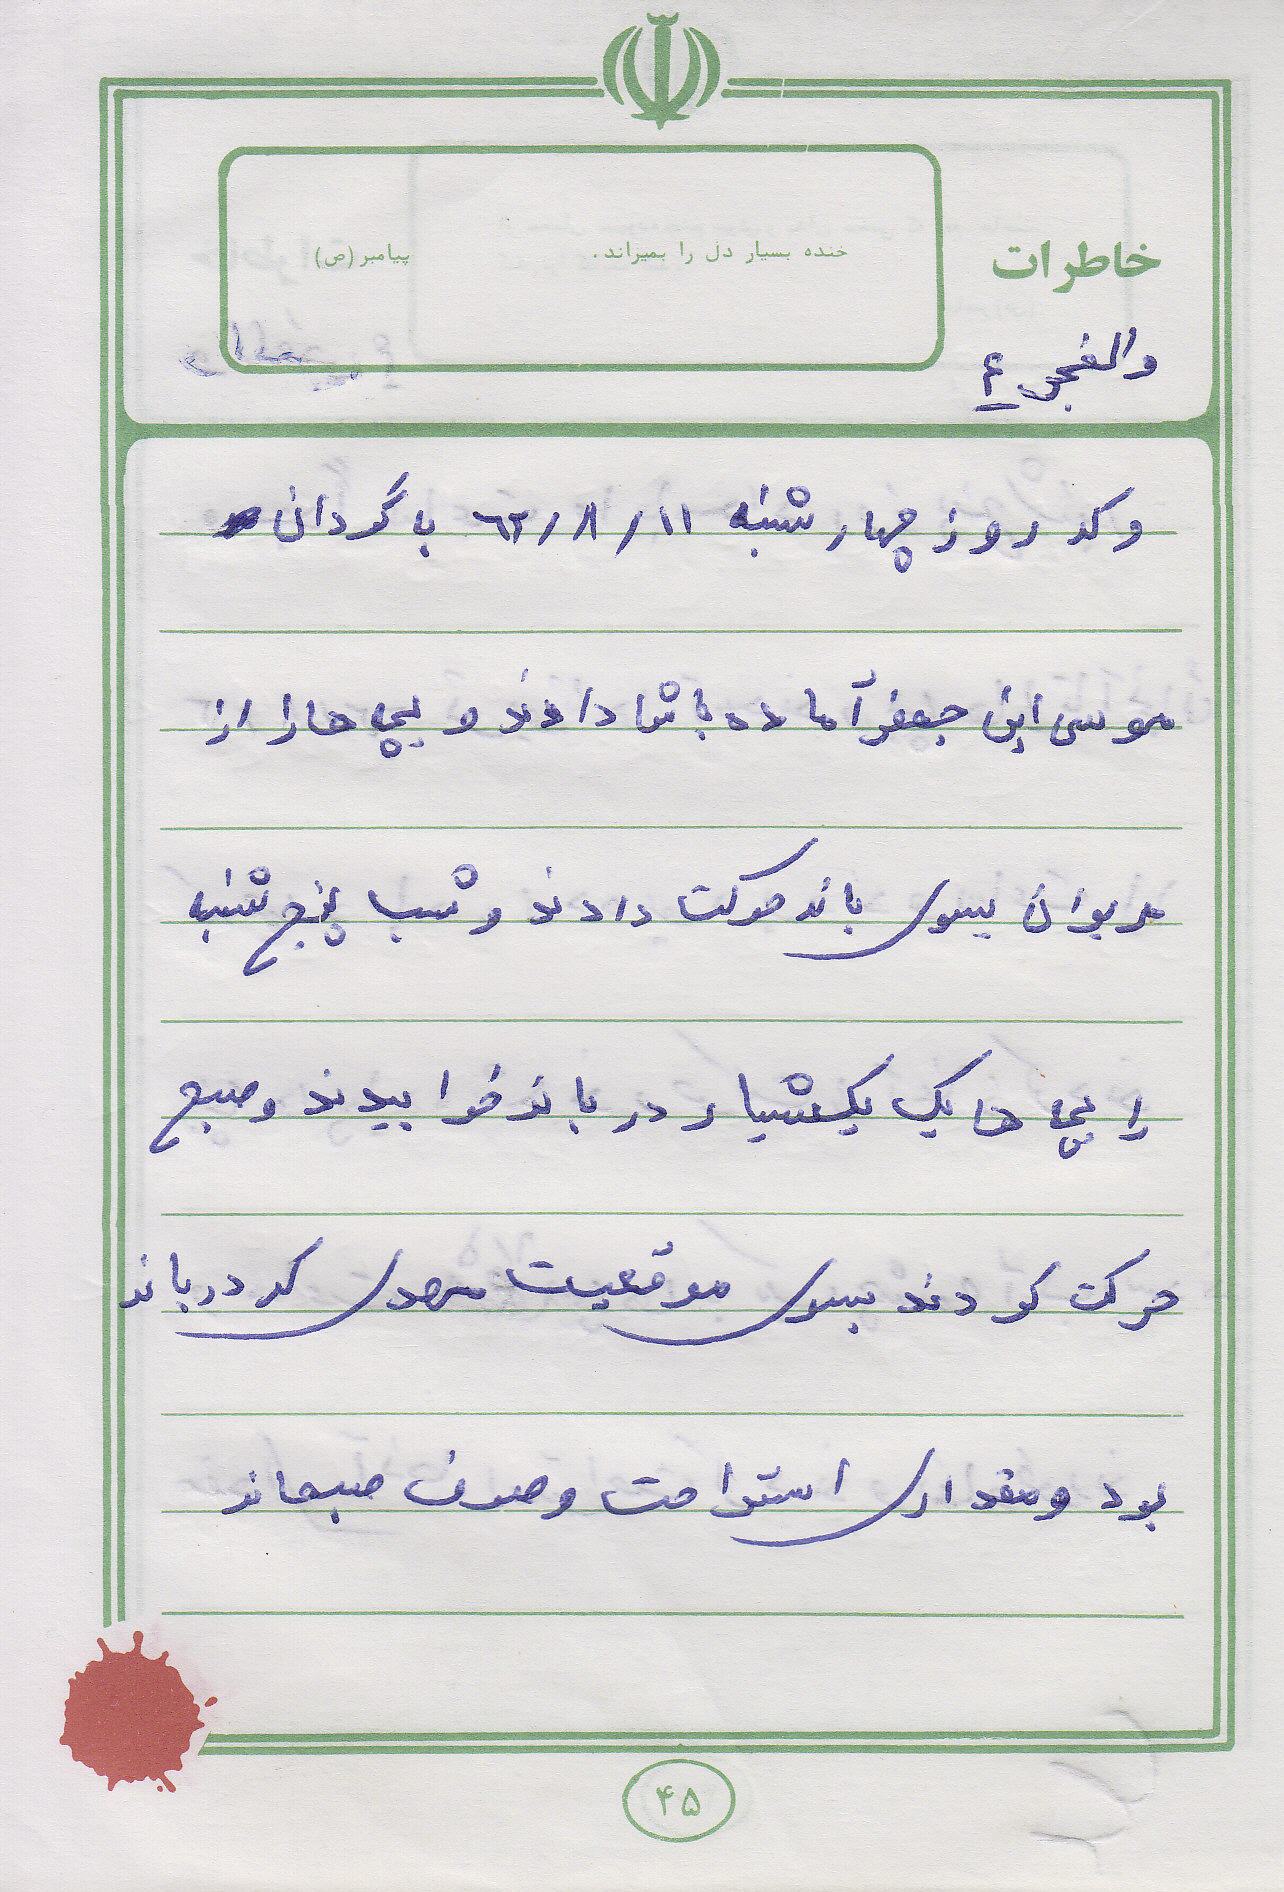 خاطرات
خنده بسیار دل را بمیراند. پیامبر (ص)
والفجر ۴
و که روز چهار شنبه ۶۲/۸/۱۱ با گردان
موسی ابن جعفر آماده باش دادند و بچه ها را از
مریوان بسوی بانه حرکت دادند و شب پنج شنبه
را بچه ها یک یکشیار در بانه خوابیدند و صبح
حرکت کردند بسوی موقعیت مهدی که در بانه
بود و مقداری استراحت و صرف صبحانه
۴۵